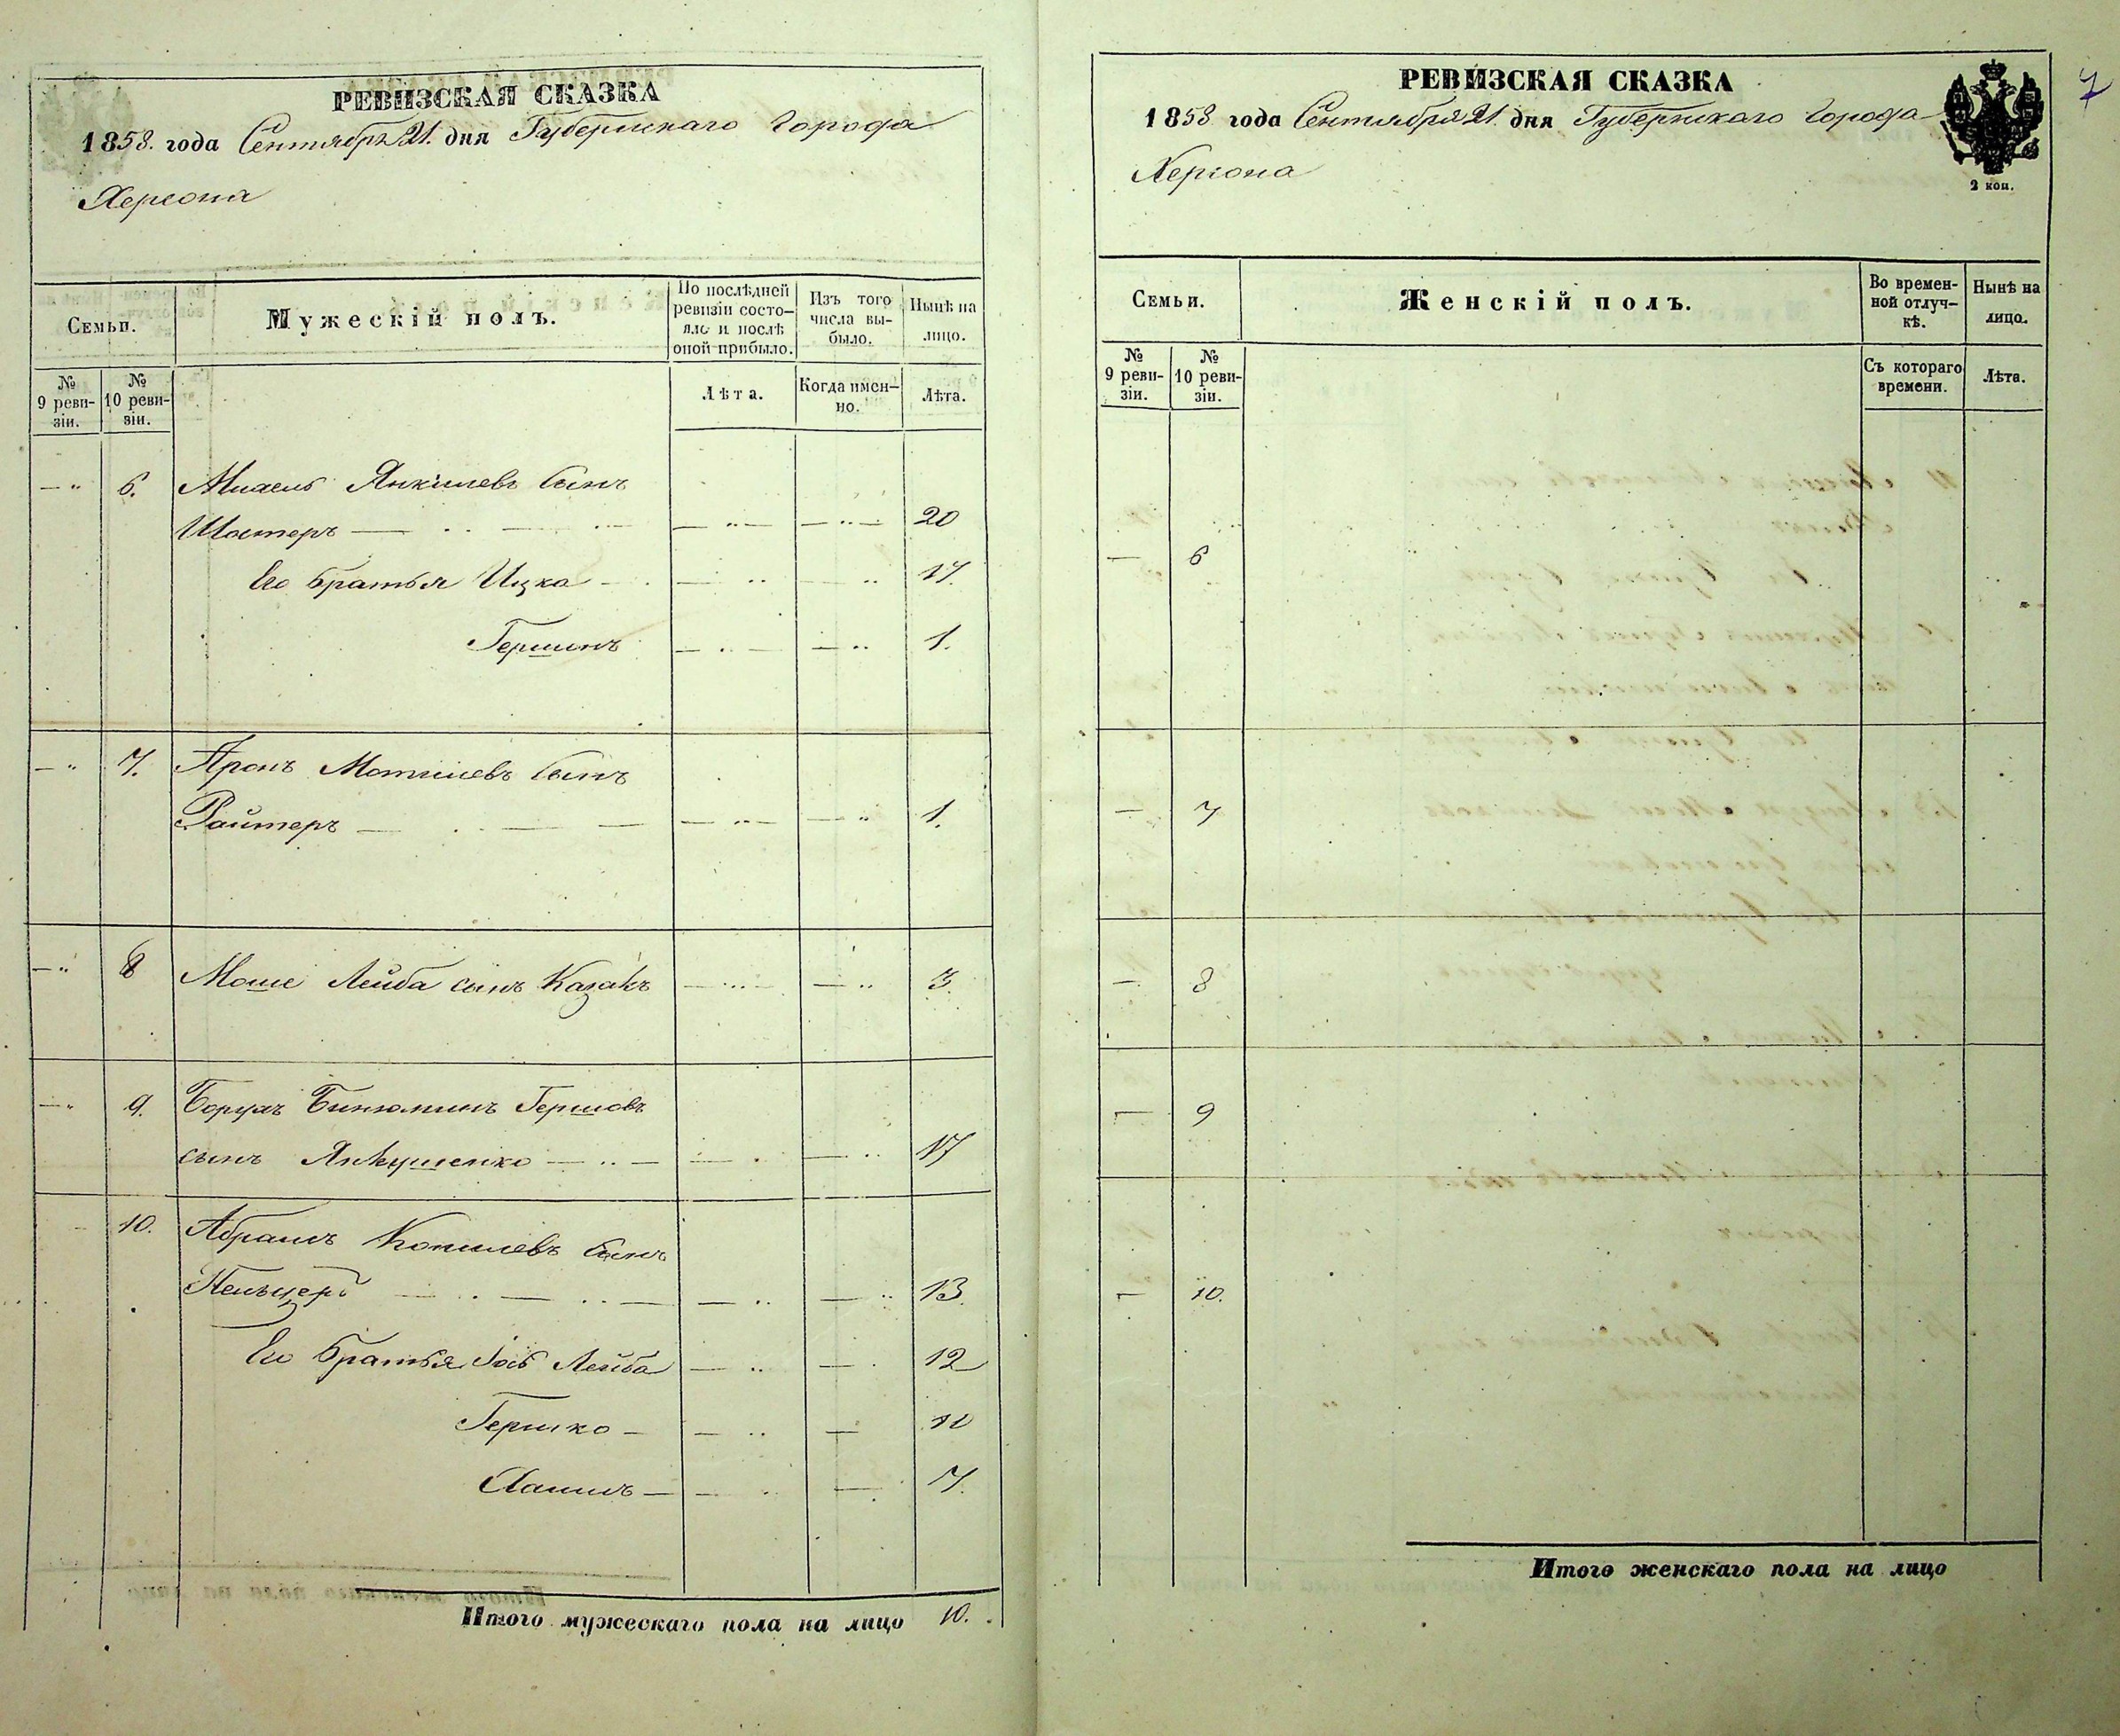 РЕВИЗСКАЯ СКАЗКА
1858. года Сентября 21. дня Губернскаго Города
Херсона
Семьи.
Мужескій полъ.
По послѣдней ревизіи состояло и послѣ оной прибыло.
Изъ того числа выбыло.
Нынѣ на лицо.
№ 9 ревизіи.
№ 10 ревизіи.
Лѣта.
Когда именно.
Лѣта.
— " 6. Янкилевъ сынъ
Шостеръ — " — " — — " — — " — 20
Его братья Ицка — — " — " 17.
Гершонъ — " — — " 1.
— " 7. Аронъ Мотилевъ сынъ
Райтеръ — " — — — " — — " 1.
— " 8 Моше Лейба сынъ Казакъ — " — — " 3.
— " 9. Борухъ Бинюминъ Гершовъ
сынъ Янкушенко — " — — " — " 17
10. Абрамъ сынъ
— " — " — — " — " 13.
Его братья Іось Лейба — " — " 12
Гершко — — " — 10
Хаимъ — — " — 7.
Итого мужескаго пола на лицо 10.
РЕВИЗСКАЯ СКАЗКА
1858 года Сентября 21. дня Губернскаго Города
Херсона
2 коп.
7
Семьи.
Женскій полъ.
Во временной отлучкѣ.
Нынѣ на лицо.
№ 9 ревизіи.
№ 10 ревизіи.
Съ котораго времени.
Лѣта.
— 6
— 7
— 8
— 9
— 10.
Итого женскаго пола на лицо